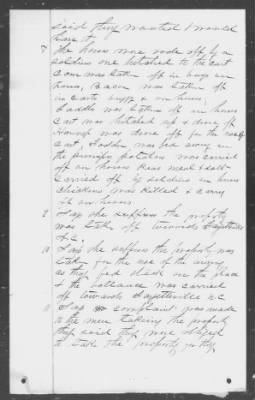 said they wanted I would
have to
7 The horses were rode off by a
soldiers one hitched to the cart
Corn was taken off in bags on
horses, Bacon was taken off
in carts buggy & on horses
Saddle was taken off on horse
Cart was hitched up & drove off
Harness was drove off on the
cart, Fodder was fed away on
the premises potatoes was carried
off on horses Peas meal & salt
Carried off by soldiers on horses
Chickens was killed & carry
off on horses
8 I say she suppose the property
was taken off towards Fayetteville
N.C.
10 I say she suppose the property was
taken for the use of the army
as they fed stock on the place
& the ballance was carried
off towards Fayetteville N C
11 I say complaint was made
to the men taking the property
they said they were obliged
to take the property as they